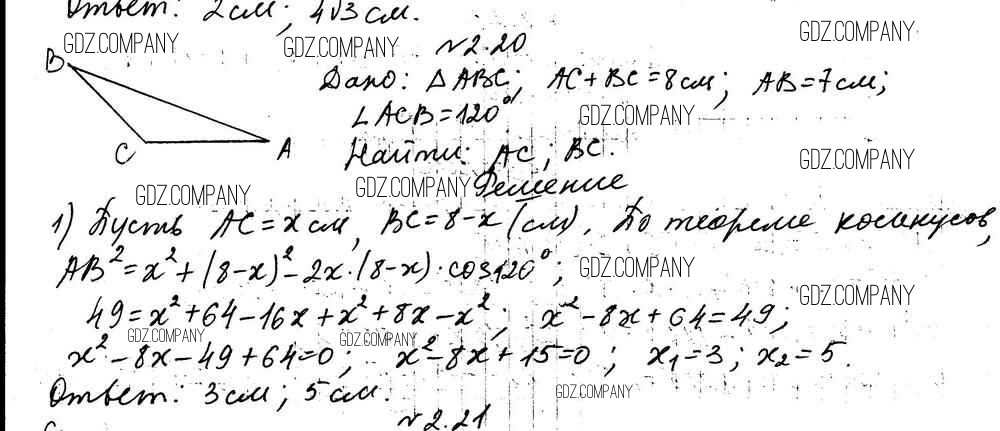 Ответ: 2см; 4√3 см.
GDZ.COMPANY GDZ.COMPANY GDZ.COMPANY
№2.20
B
Дано: △ABC; AC+BC=8см; AB=7см;
∠ACB=120° GDZ.COMPANY
C A
Найти: AC; BC. GDZ.COMPANY
GDZ.COMPANY GDZ.COMPANY Решение
1) Пусть AC=x см, BC=8-x (см). По теореме косинусов,
AB²=x²+(8-x)²-2x·(8-x)·cos120°; GDZ.COMPANY
GDZ.COMPANY
49=x²+64-16x+x²+8x-x²; x²-8x+64=49;
GDZ.COMPANY GDZ.COMPANY
x²-8x-49+64=0; x²-8x+15=0; x₁=3; x₂=5.
Ответ: 3см; 5см. GDZ.COMPANY
№2.21